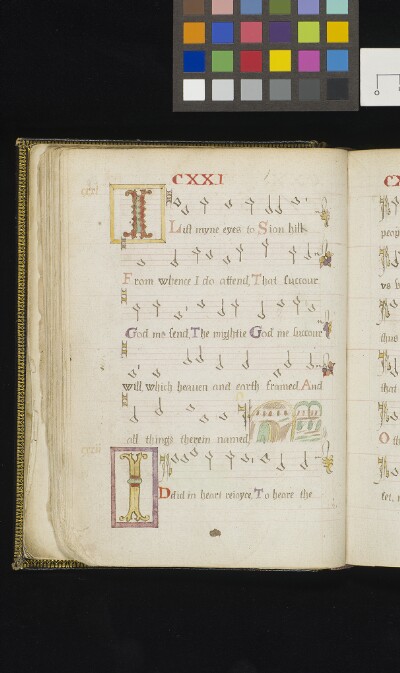 CXXI
I Lift myne eyes to Sion hill
From whence I do attend, That succour
God me send, The mightie God me succour
will, which heauen and earth framed, And
all things therein named
I Did in heart reioyce, To heare the
CX
peop
vs
thus
that
O th